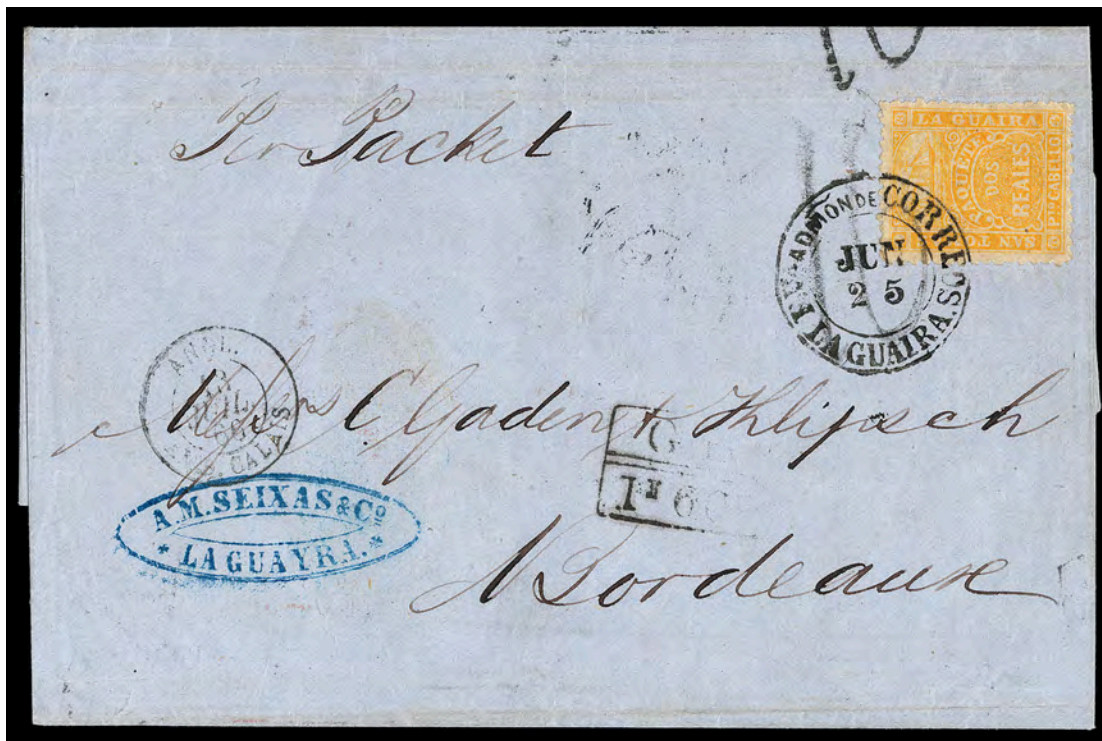 Per Packet
LA GUAIRA
PAQUETE
DOS
REALES
Pto CABELLO
SAN TO
ADMON DE CORREOS
JUN
25
LA GUAIRA.
ANGL.
CALAIS
Messrs C Gaden & Klipsch
G
1F60
A.M.SEIXAS&Co
* LA GUAYRA. *
Bordeaux